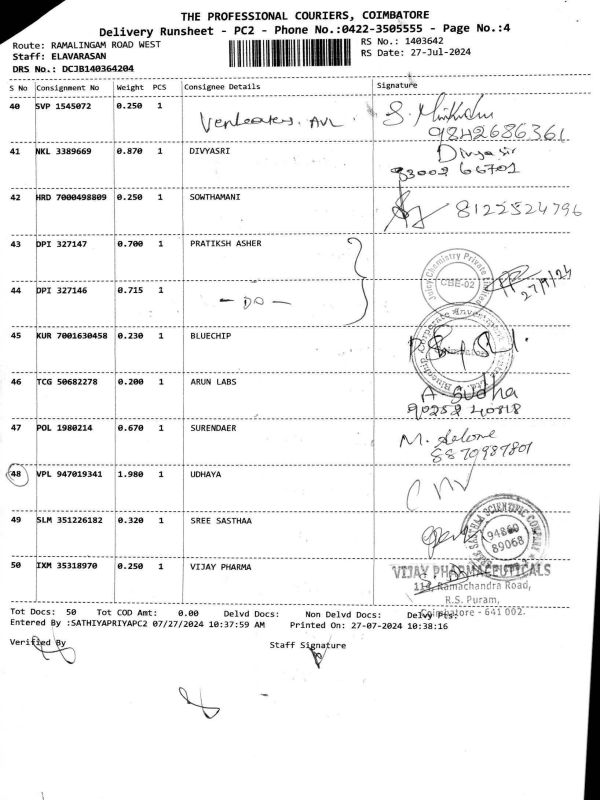 THE PROFESSIONAL COURIERS, COIMBATORE
Delivery Runsheet - PC2 - Phone No.:0422-3505555 - Page No.:4
Route: RAMALINGAM ROAD WEST RS No.: 1403642
Staff: ELAVARASAN RS Date: 27-Jul-2024
DRS No.: DCJB140364204
S No Consignment No Weight PCS Consignee Details Signature
40 SVP 1545072 0.250 1
9842686361
41 NKL 3389669 0.870 1 DIVYASRI Divyasri
83002 66701
42 HRD 7000498809 0.250 1 SOWTHAMANI 8122524796
43 DPI 327147 0.700 1 PRATIKSH ASHER
Juley Chemistry Private Limited CBE-02 27/7/24
44 DPI 327146 0.715 1 - DO -
45 KUR 7001630458 0.230 1 BLUECHIP
Bluechip Corporate Investment Coimbatore Ltd.
46 TCG 50682278 0.200 1 ARUN LABS A. Sudha
90252 40818
47 POL 1980214 0.670 1 SURENDAER M.
8870987801
48 VPL 947019341 1.980 1 UDHAYA
49 SLM 351226182 0.320 1 SREE SASTHAA
SREE SASTHA SCIENTIFIC COMPANY 94860 89068
50 IXM 35318970 0.250 1 VIJAY PHARMA VIJAY PHARMACEUTICALS
Ramachandra Road,
R.S. Puram,
Coimbatore - 641 002.
Tot Docs: 50 Tot COD Amt: 0.00 Delvd Docs: Non Delvd Docs: Delvy Pts:
Entered By :SATHIYAPRIYAPC2 07/27/2024 10:37:59 AM Printed On: 27-07-2024 10:38:16
Verified By Staff Signature